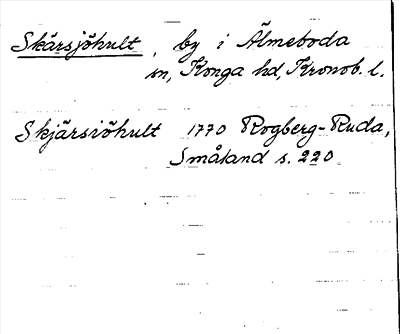 Skärsjöhult, by i Älmeboda
sn, Konga hd, Kronob. l.
Skjärsiöhult 1770 Rogberg-Ruda,
Småland s. 220